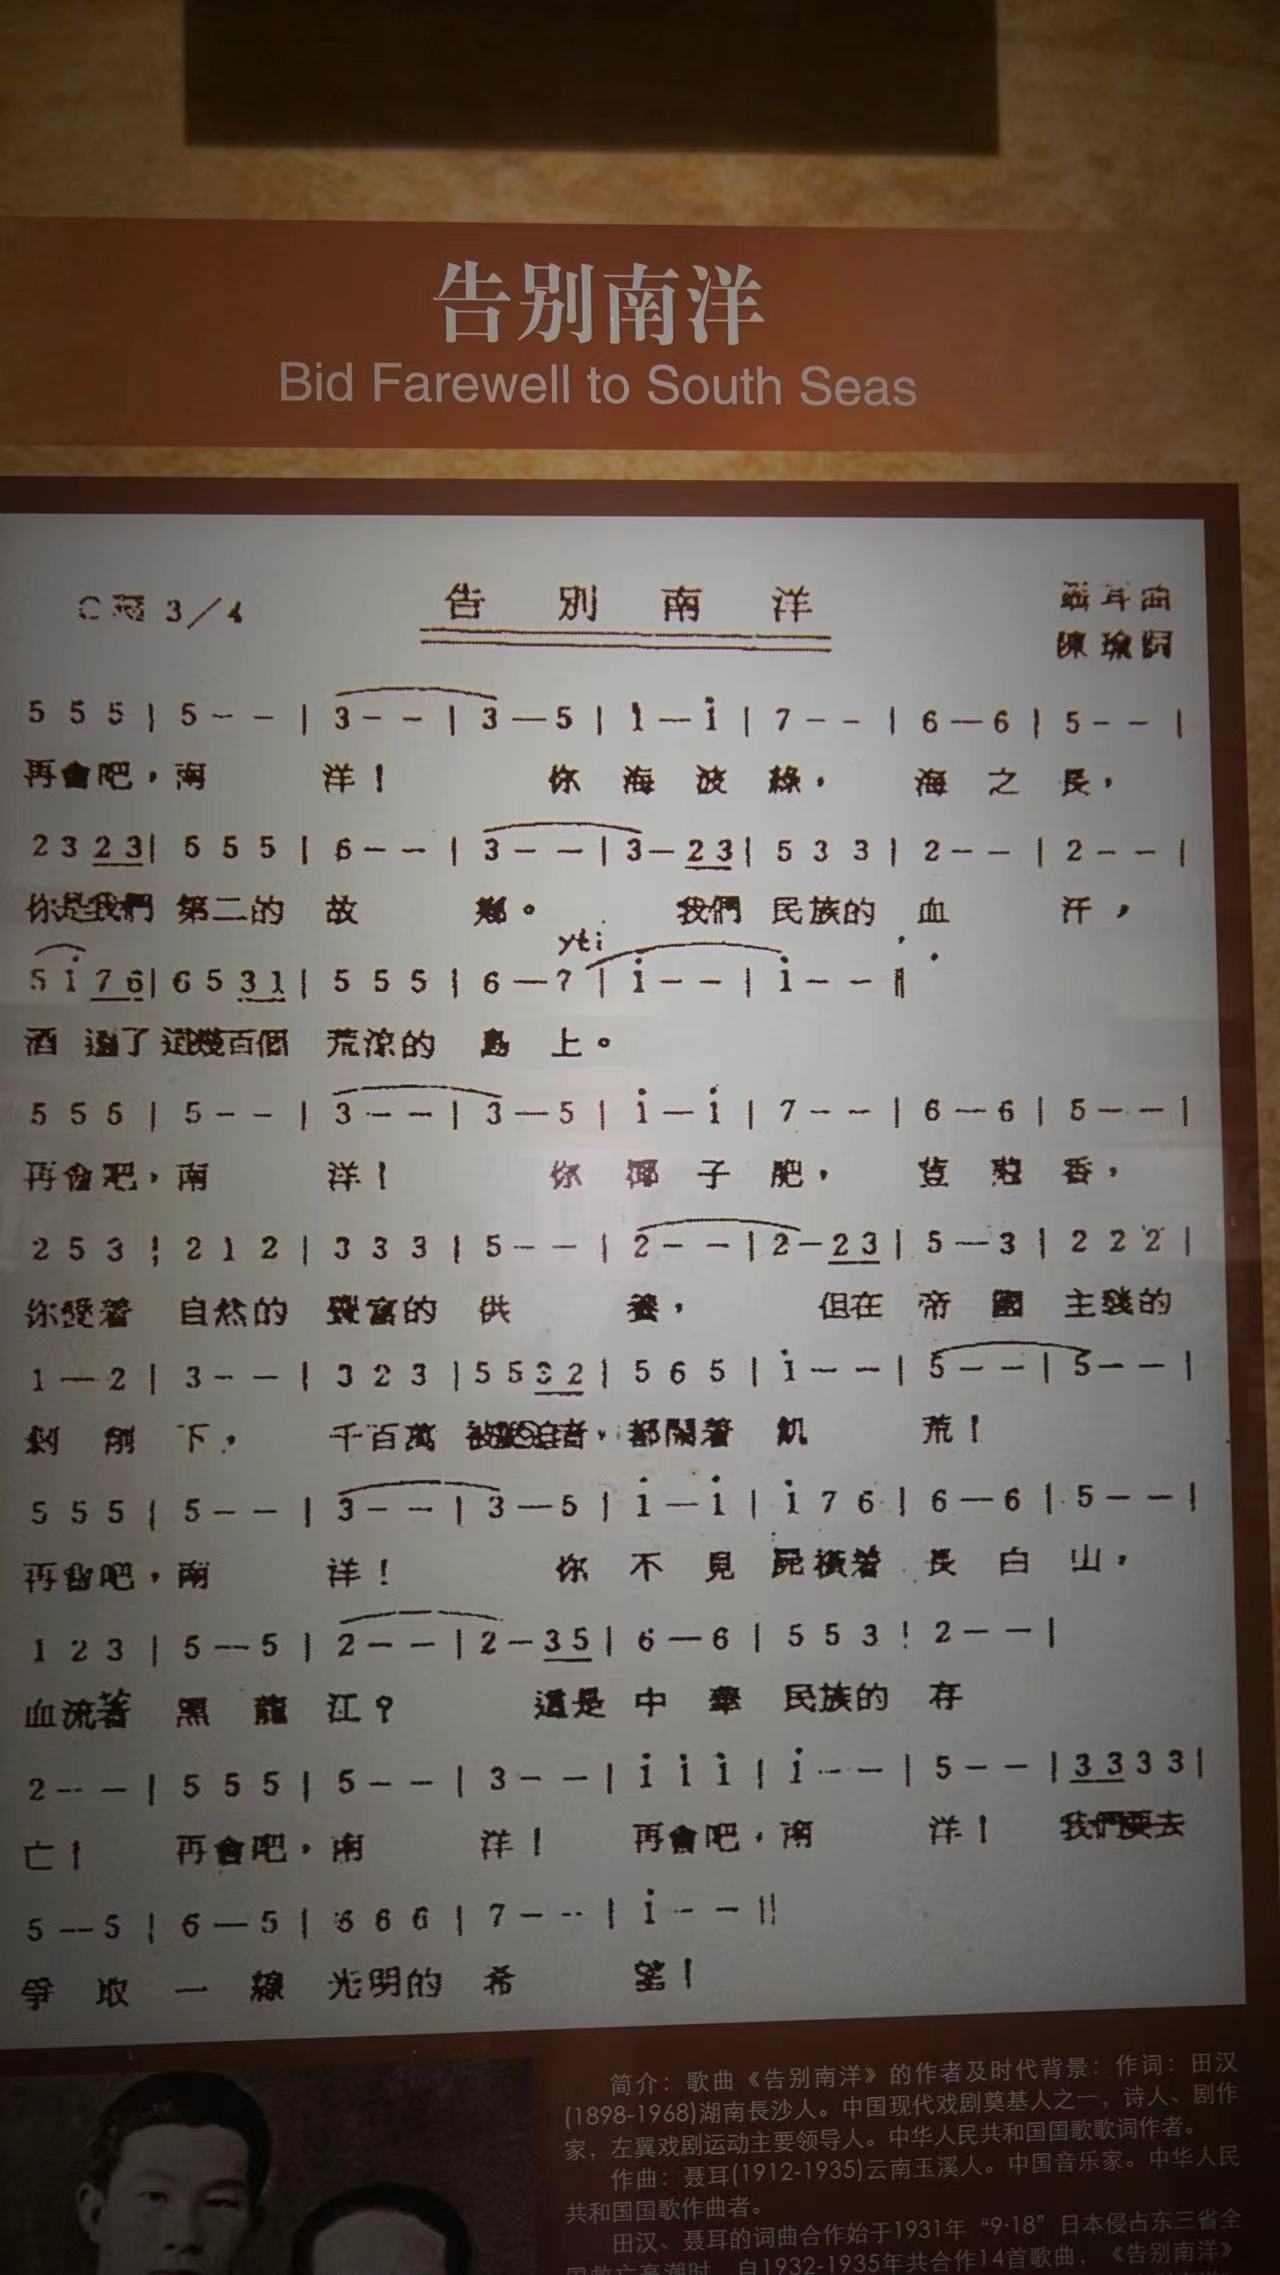 告别南洋
Bid Farewell to South Seas
C 3／4 告別南洋 聶耳曲
陳瑜詞
5 5 5 | 5 - - | 3 - - | 3 — 5 | 1 — i | 7 - - | 6 — 6 | 5 - - |
再會吧，南 洋！ 你 海 波 綠， 海 之 長，
2 3 2 3 | 5 5 5 | 6 - - | 3 - - | 3 — 2 3 | 5 3 3 | 2 - - | 2 - - |
你是我們 第二的 故 鄉。 我們 民族的 血 汗，
yti
5 i 7 6 | 6 5 3 1 | 5 5 5 | 6 — 7 | i - - | i - - ‖
洒 過了 這幾百個 荒涼的 島 上。
5 5 5 | 5 - - | 3 - - | 3 — 5 | i — i | 7 - - | 6 — 6 | 5 - - |
再會吧，南 洋！ 你 椰 子 肥， 荳 蔻 香，
2 5 3 | 2 1 2 | 3 3 3 | 5 - - | 2 - - | 2 - 2 3 | 5 — 3 | 2 2 2 |
你受着 自然的 豐富的 供 養， 但在 帝 國 主義的
1 — 2 | 3 - - | 3 2 3 | 5 5 3 2 | 5 6 5 | i - - | 5 - - | 5 - - |
剝 削 下， 千百萬 被壓迫者，都鬧着 飢 荒！
5 5 5 | 5 - - | 3 - - | 3 — 5 | i — i | i 7 6 | 6 — 6 | 5 - - |
再會吧，南 洋！ 你 不 見 屍橫着 長 白 山，
1 2 3 | 5 — 5 | 2 - - | 2 - 3 5 | 6 — 6 | 5 5 3 | 2 - - |
血流着 黑 龍 江？ 這是 中 華 民族的 存
2 - - | 5 5 5 | 5 - - | 3 - - | i i i | i - - | 5 - - | 3 3 3 3 |
亡！ 再會吧，南 洋！ 再會吧，南 洋！ 我們要去
5 — 5 | 6 — 5 | 6 6 6 | 7 - - | i - - ‖
爭 取 一 線 光明的 希 望！
简介：歌曲《告别南洋》的作者及时代背景：作词：田汉
(1898-1968)湖南長沙人。中国现代戏剧奠基人之一，诗人、剧作
家，左翼戏剧运动主要领导人。中华人民共和国国歌歌词作者。
作曲：聂耳(1912-1935)云南玉溪人。中国音乐家。中华人民
共和国国歌作曲者。
田汉、聂耳的词曲合作始于1931年“9·18”日本侵占东三省全
国救亡高潮时，自1932-1935年共合作14首歌曲，《告别南洋》